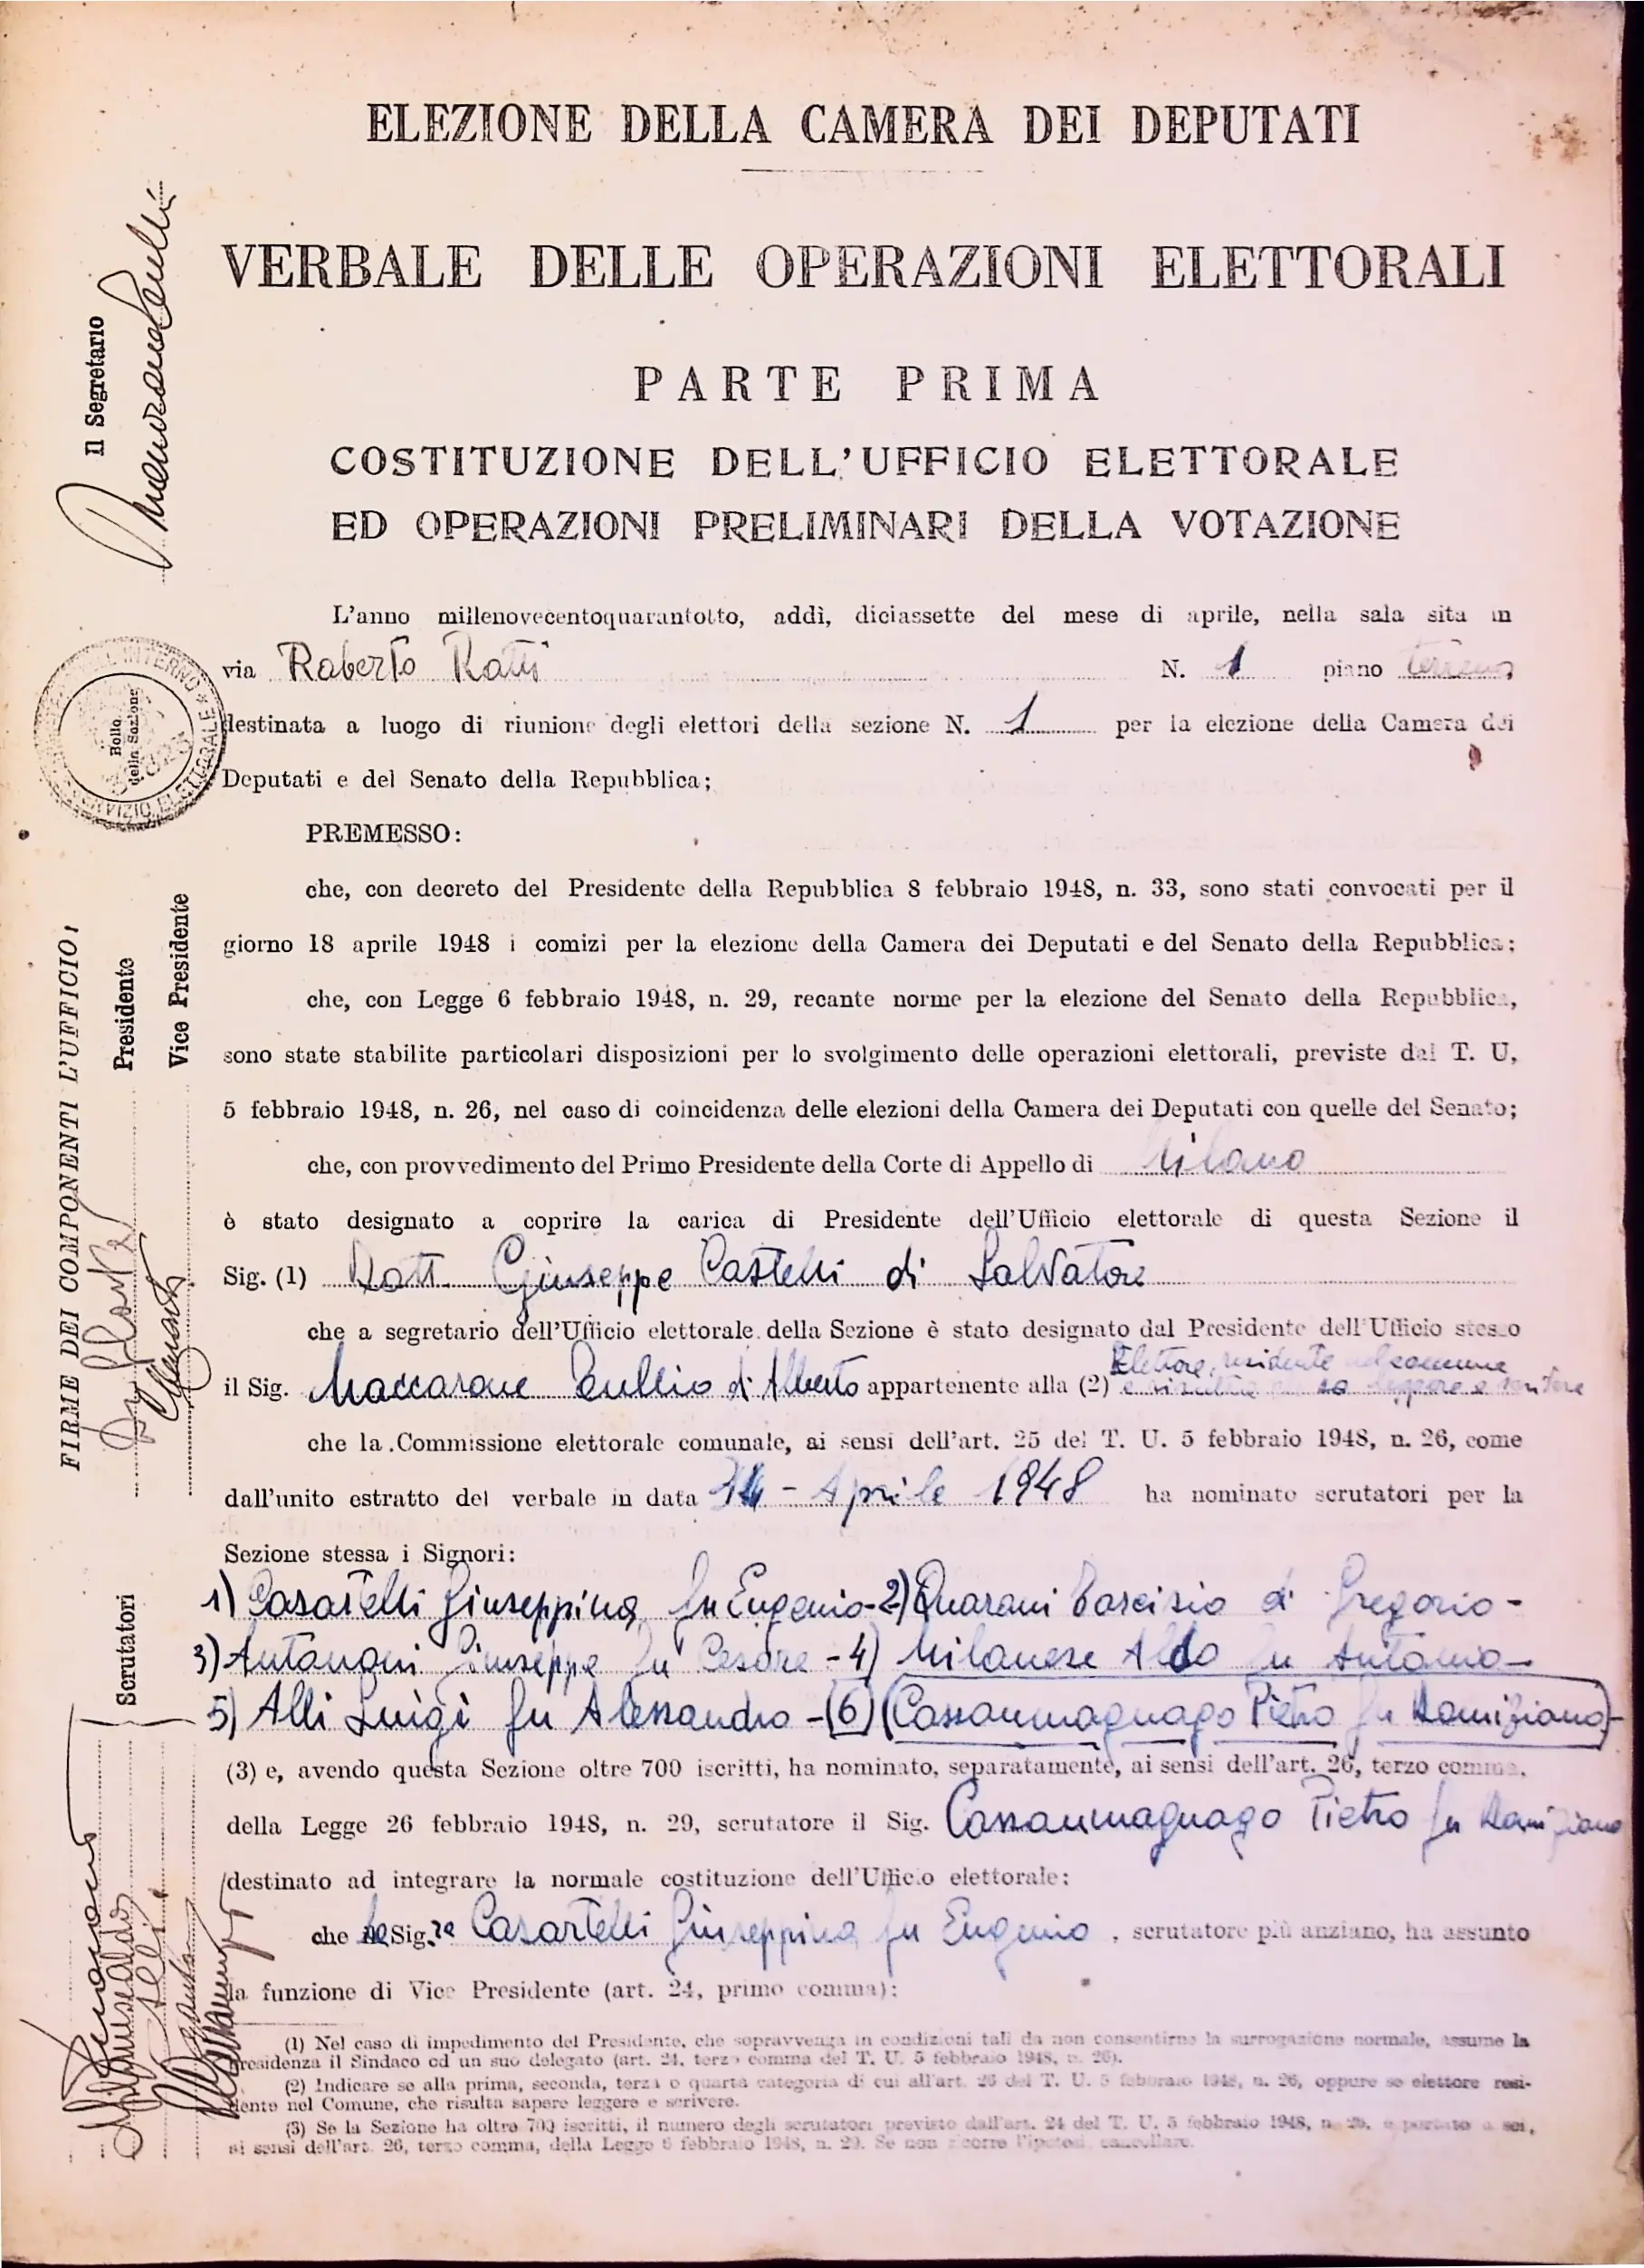 ELEZIONE DELLA CAMERA DEI DEPUTATI
VERBALE DELLE OPERAZIONI ELETTORALI
PARTE PRIMA
COSTITUZIONE DELL'UFFICIO ELETTORALE
ED OPERAZIONI PRELIMINARI DELLA VOTAZIONE
L'anno millenovecentoquarantotto, addì, diciassette del mese di aprile, nella sala sita in
via Roberto Ratti N. 1 piano terreno
destinata a luogo di riunione degli elettori della sezione N. 1 per la elezione della Camera dei
Deputati e del Senato della Repubblica;
PREMESSO:
che, con decreto del Presidente della Repubblica 8 febbraio 1948, n. 33, sono stati convocati per il
giorno 18 aprile 1948 i comizi per la elezione della Camera dei Deputati e del Senato della Repubblica;
che, con Legge 6 febbraio 1948, n. 29, recante norme per la elezione del Senato della Repubblica,
sono state stabilite particolari disposizioni per lo svolgimento delle operazioni elettorali, previste dal T. U,
5 febbraio 1948, n. 26, nel caso di coincidenza delle elezioni della Camera dei Deputati con quelle del Senato;
che, con provvedimento del Primo Presidente della Corte di Appello di Milano
è stato designato a coprire la carica di Presidente dell'Ufficio elettorale di questa Sezione il
Sig. (1) Dott. Giuseppe Castelli di Salvatore
che a segretario dell'Ufficio elettorale della Sezione è stato designato dal Presidente dell'Ufficio stesso
Elettore, residente nel comune
il Sig. Maccarone Tullio di Alberto appartenente alla (2) e risulta sa leggere e scrivere
che la Commissione elettorale comunale, ai sensi dell'art. 25 del T. U. 5 febbraio 1948, n. 26, come
dall'unito estratto del verbale in data 14 - Aprile 1948 ha nominato scrutatori per la
Sezione stessa i Signori:
1) Casartelli Giuseppina fu Eugenio - 2) Quarani Tarcisio di Gregorio -
3) Antononi Giuseppe fu Cesare - 4) Milanese Aldo fu Antonio -
5) Alli Luigi fu Alessandro - (6) (Cassanmagnago Pietro fu Damiziano) -
(3) e, avendo questa Sezione oltre 700 iscritti, ha nominato, separatamente, ai sensi dell'art. 26, terzo comma,
della Legge 26 febbraio 1948, n. 29, scrutatore il Sig. Cassanmagnago Pietro fu Damiziano
destinato ad integrare la normale costituzione dell'Ufficio elettorale;
che la Sig.ra Casartelli Giuseppina fu Eugenio, scrutatore più anziano, ha assunto
la funzione di Vice Presidente (art. 24, primo comma);
(1) Nel caso di impedimento del Presidente, che sopravvenga in condizioni tali da non consentirne la surrogazione normale, assume la
presidenza il Sindaco od un suo delegato (art. 24, terzo comma del T. U. 5 febbraio 1948, n. 26).
(2) Indicare se alla prima, seconda, terza o quarta categoria di cui all'art. 25 del T. U. 5 febbraio 1948, n. 26, oppure se elettore resi-
dente nel Comune, che risulta sapere leggere e scrivere.
(3) Se la Sezione ha oltre 700 iscritti, il numero degli scrutatori previsto dall'art. 24 del T. U. 5 febbraio 1948, n. 26, è portato a sei,
ai sensi dell'art. 26, terzo comma, della Legge 6 febbraio 1948, n. 29. Se non ricorre l'ipotesi, cancellare.
Il Segretario
Bollo
della Sezione
FIRME DEI COMPONENTI L'UFFICIO:
Presidente
Vice Presidente
Scrutatori